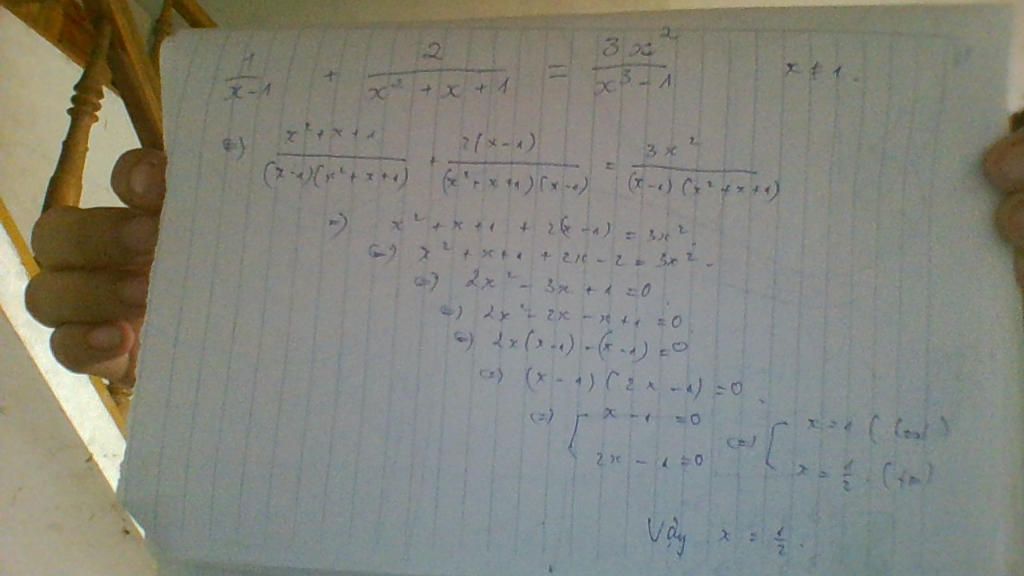 1/(x-1) + 2/(x² + x + 1) = 3x²/(x³ - 1) x ≠ 1.
<=> (x² + x + 1)/((x-1)(x² + x + 1)) + 2(x-1)/((x² + x + 1)(x-1)) = 3x²/((x-1)(x² + x + 1))
=> x² + x + 1 + 2(x-1) = 3x²
<=> x² + x + 1 + 2x - 2 = 3x².
<=> 2x² - 3x + 1 = 0
<=> 2x² - 2x - x + 1 = 0
<=> 2x(x-1) - (x-1) = 0
<=> (x-1)(2x-1) = 0.
<=> [ x - 1 = 0 <=> [ x = 1
2x - 1 = 0 x = 1/2
Vậy x = 1/2.